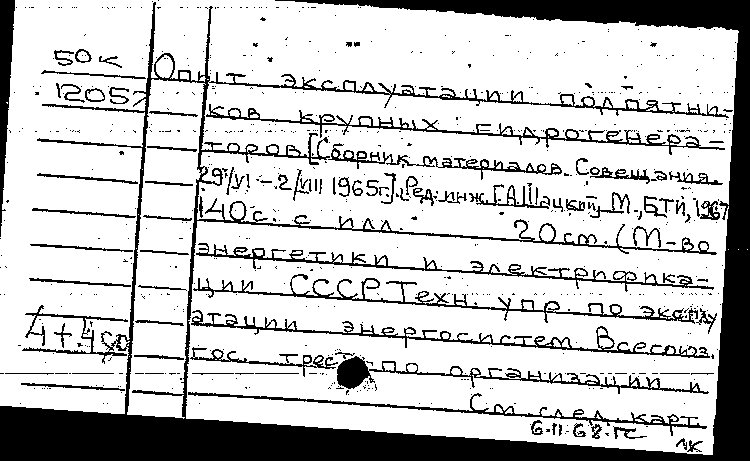 50к Опыт эксплуатации подпятни-
12057 ков крупных гидрогенера=
торов. [Сборник материалов. Совещания.
29/VI – 2/VII 1965г.]. Ред. инж. Г.А. Шацкину М., БТИ, 1967
140с. с илл. 20см. (М-во
энергетики и электрифика=
ции СССР. Техн. упр. по эксплу
атации энергосистем. Всесоюз.
гос. трест по организации и
См. след. карт.
6·II·68·ГС